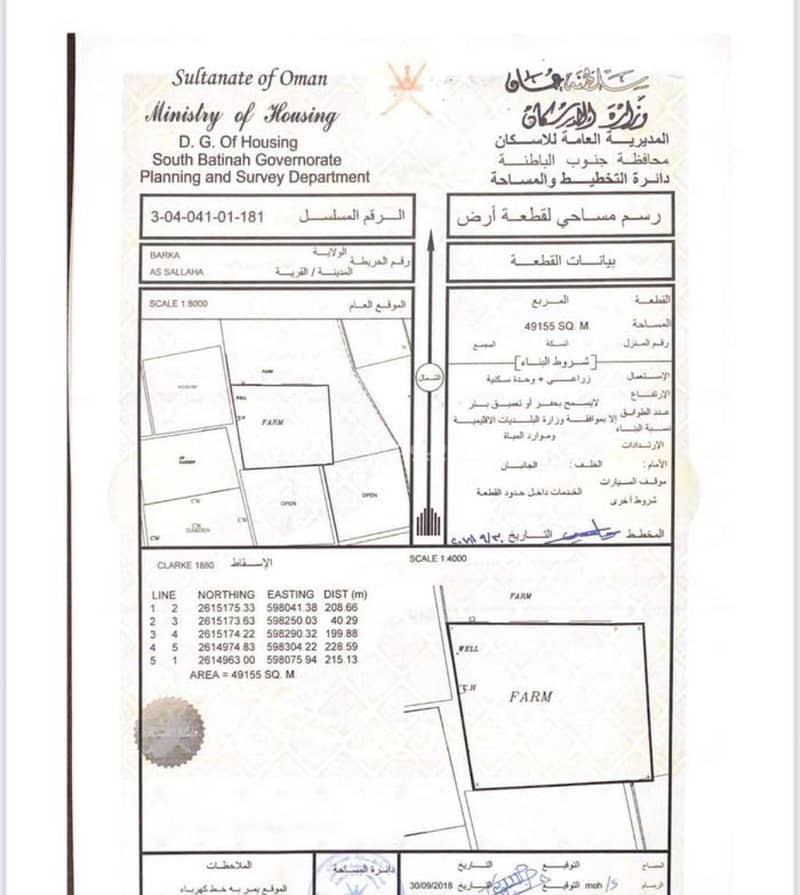 Sultanate of Oman
Ministry of Housing
D. G. Of Housing
South Batinah Governorate
Planning and Survey Department
سلطنة عمان
وزارة الإسكان
المديرية العامة للاسكان
محافظة جنوب الباطنة
دائرة التخطيط والمساحة
3-04-041-01-181 الرقم المسلسل
رسم مساحي لقطعة أرض
BARKA الولاية
AS SALLAHA المدينة / القرية
رقم الخريطة
بيانات القطعة
SCALE 1:8000 الموقع العام
FARM
WELL
FARM
OPEN
OPEN
C.W
C.W
C.W
GARDEN
C.W
الشمال
القطعة المربع
المساحة 49155 SQ. M.
رقم المنزل السكة المجمع
شروط البناء
الإستعمال زراعي + وحدة سكنية
الإرتفاع
عدد الطوابق
نسبة البناء
لايسمح بحفر أو تعميق بئر
إلا بموافقة وزارة البلديات الاقليمية
وموارد المياة
الإرتدادات
الأمام : الخلف : الجانبان
موقف السيارات
شروط أخرى
الخدمات داخل حدود القطعة
المخطط التاريخ
CLARKE 1880 الإسقاط
SCALE 1:4000
LINE NORTHING EASTING DIST (m)
1 2 2615175.33 598041.38 208.66
2 3 2615173.63 598250.03 40.29
3 4 2615174.22 598290.32 199.88
4 5 2614974.83 598304.22 228.59
5 1 2614963.00 598075.94 215.13
AREA = 49155 SQ. M
FARM
WELL
FARM
الملاحظات
الموقع يمر به خط كهرباء
دائرة المساحة
المساح التوقيع التاريخ
الرسام moh /5 التوقيع التاريخ 30/09/2018